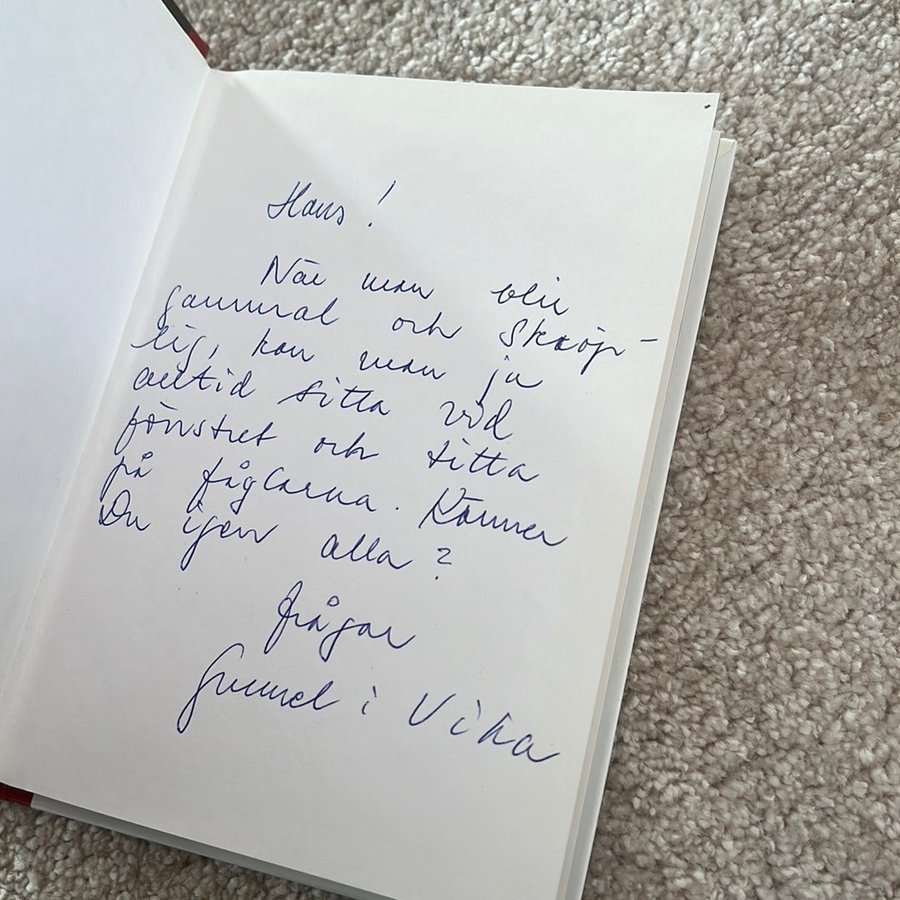 Hans!
När man blir
gammal och skröp-
lig, kan man ju
alltid sitta vid
fönstret och titta
på fåglarna. Känner
Du igen alla?
frågar
Gunnel i Vika